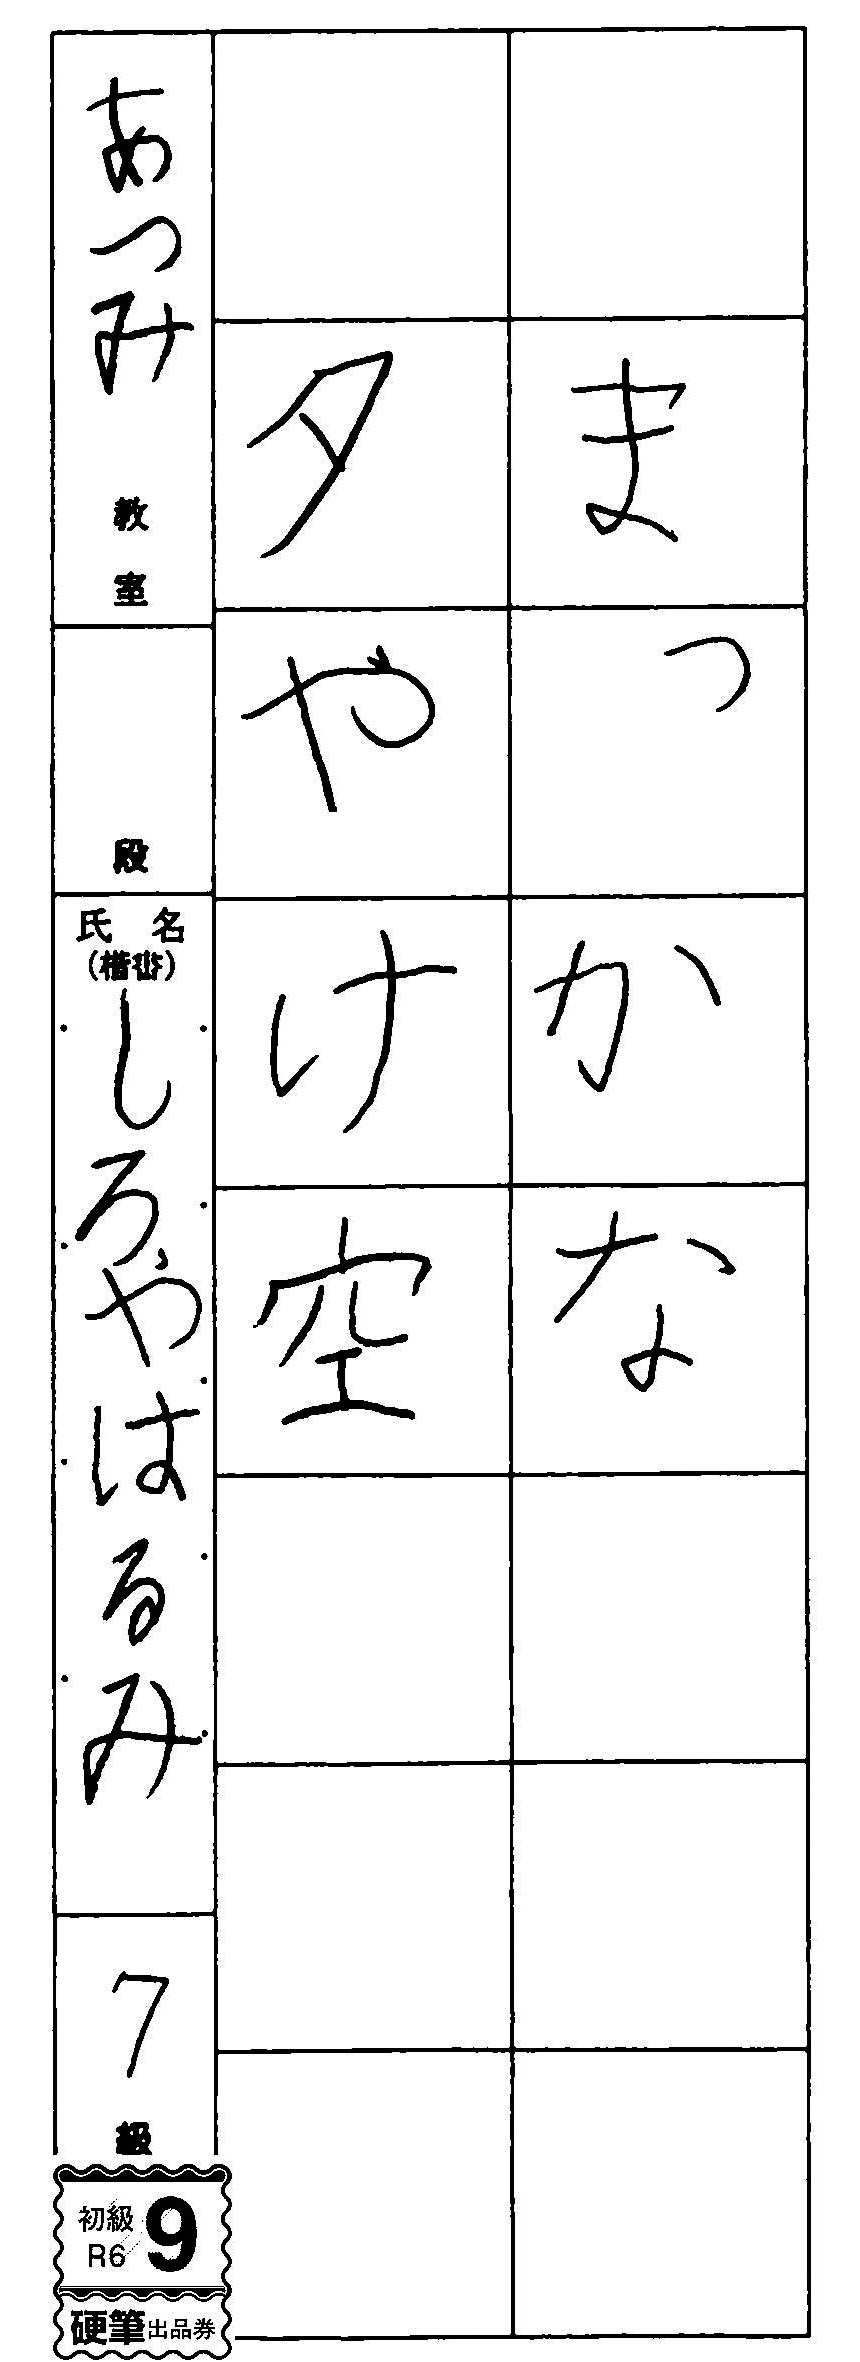 まっかな
夕やけ空
あつみ教室
段
氏名
(楷書)
しろやはるみ
7級
初級
R6
9
硬筆出品券